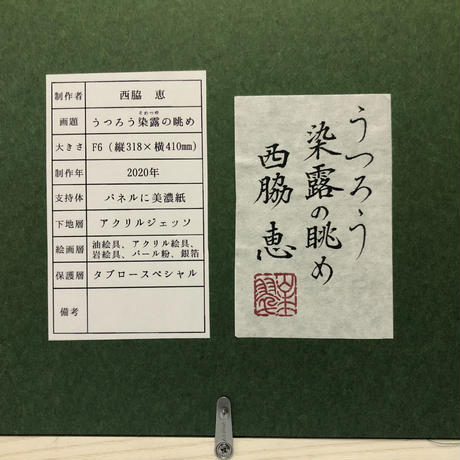 制作者 西脇 恵
画題 うつろう染露の眺め
そめつゆ
大きさ F6(縦318×横410mm)
制作年 2020年
支持体 パネルに美濃紙
下地層 アクリルジェッソ
絵画層 油絵具、アクリル絵具、
岩絵具、パール粉、銀箔
保護層 タブロースペシャル
備考
うつろう
染露の眺め
西脇 恵